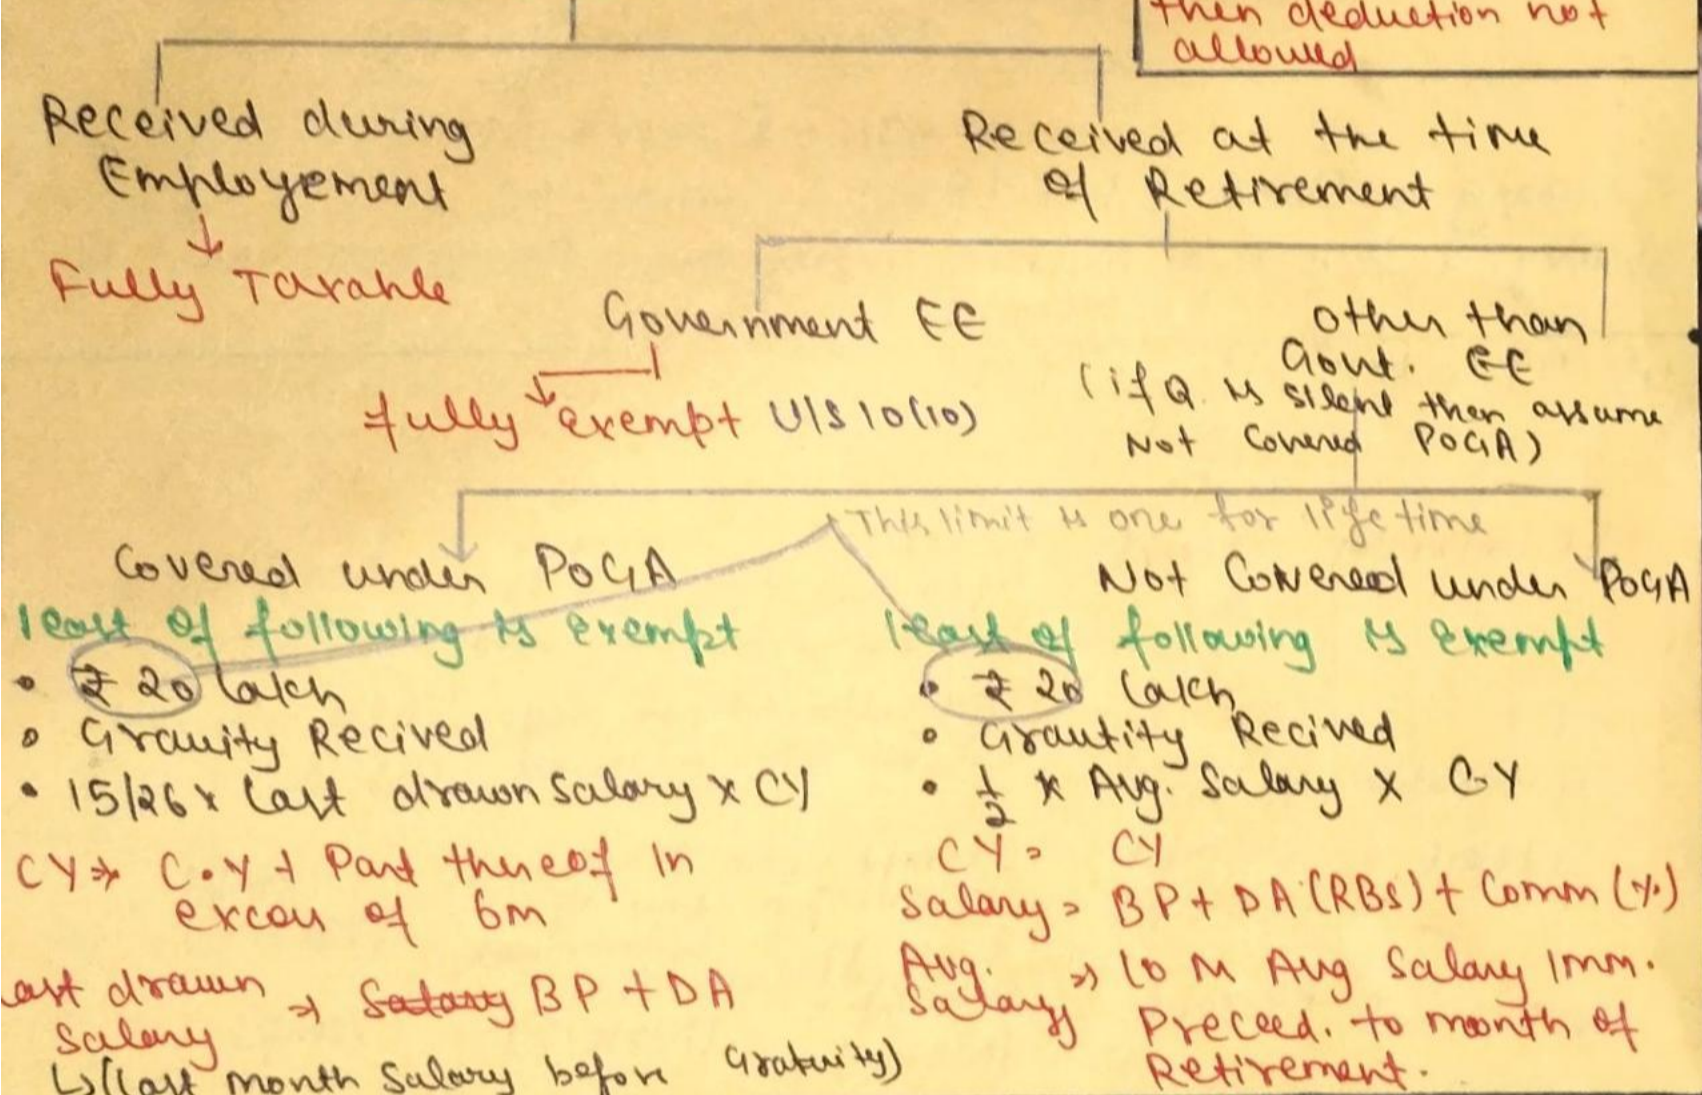 then deduction not
allowed
Received during
Employement
Fully Taxable
Received at the time
of Retirement
Government EE
fully exempt U/S 10(10)
other than
Govt. EE
(if Q is silent then assume
Not Covered POGA)
This limit is one for life time
Covered under POGA
least of following is exempt
• ₹ 20 lakh
• Grauity Recived
• 15/26 x last drawn salary x CY
CY ⇒ C.Y + Part thereof in
excess of 6m
Last drawn
salary
⇒ Salary BP + DA
↳ (last month salary before Gratuity)
Not Covered under POGA
least of following is exempt
• ₹ 20 lakh
• Grautity Recived
• 1/2 * Avg. Salary x CY
CY = CY
Salary = BP + DA (RBs) + Comm (%)
Avg.
Salary
⇒ 10 M Avg Salary Imm.
Preceed. to month of
Retirement.